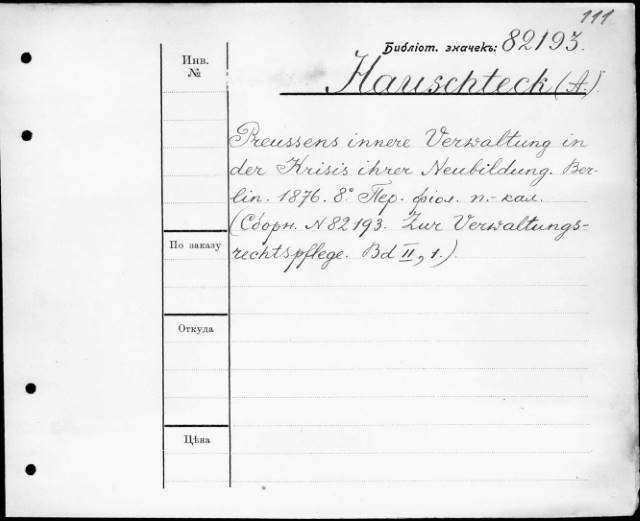 111
Библіот. значекъ: 82193.
Hauschteck (A.)
Инв.
№
Preussens innere Verwaltung in
der Krisis ihrer Neubildung. Ber-
lin. 1876. 8° Пер. фіол. п.-кал.
(Сборн. N 82193. Zur Verwaltungs-
rechtspflege. Bd II, 1.)
По заказу
Откуда
Цѣна